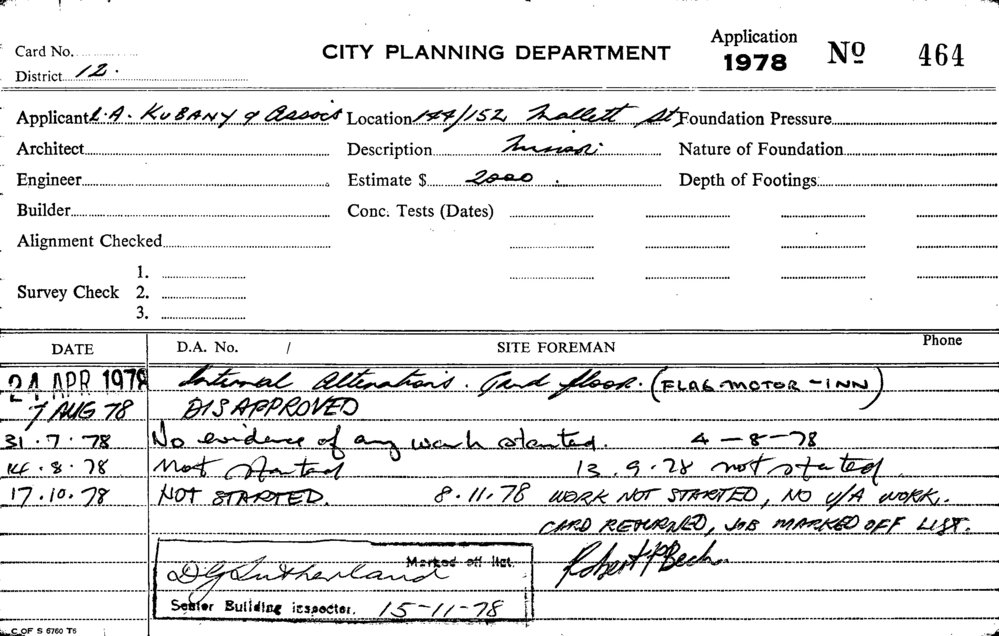 Card No.
District 12.
CITY PLANNING DEPARTMENT
Application
1978 Nº 464
Applicant L.A. KUBANY & Assocs Location 144/152 Mallett St Foundation Pressure
Architect Description Nature of Foundation
Engineer Estimate $ 2000. Depth of Footings
Builder Conc. Tests (Dates)
Alignment Checked
1.
Survey Check 2.
3.
DATE D.A. No. / SITE FOREMAN Phone
24 APR 1978 Internal Alterations. Grnd floor. (FLAG MOTOR-INN)
7 AUG 78 DISAPPROVED
31.7.78 No evidence of any work started. 4-8-78
14.8.78 Not started 13.9.78 not started
17.10.78 NOT STARTED. 8.11.78 WORK NOT STARTED, NO U/A WORK.
CARD RETURNED, JOB MARKED OFF LIST.
Marked off list.
D G Sutherland Robert P
Senior Building inspector. 15-11-78
C OF S 6760 T6